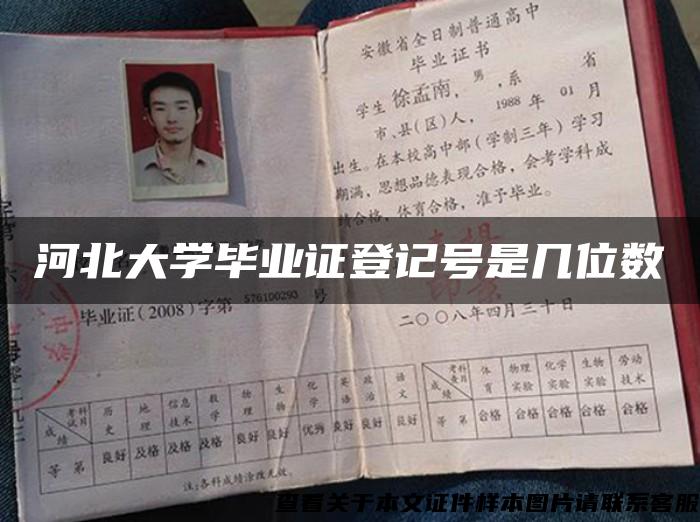 安徽省全日制普通高中
毕业证书
学生徐孟南，男，系 省
市、县(区)人，1988年01月
出生。在本校高中部（学制三年）学习
期满，思想品德表现合格，会考学科成
绩合格，体育合格，准予毕业。
河北大学毕业证登记号是几位数
毕业证(2008)字第576100293号
二〇〇八年四月三十日
考试科目 历史 地理 信息技术 数学 物理 生物 化学 英语 政治 语文
成绩
等第 良好 及格 及格 及格 良好 良好 优秀 良好 良好 良好
注:各科成绩涂改无效。
考查科目 体育 物理实验 化学实验 生物实验 劳动技术
成绩
等第 合格 合格 合格 合格 合格
查看关于本文证件样本图片请联系客服